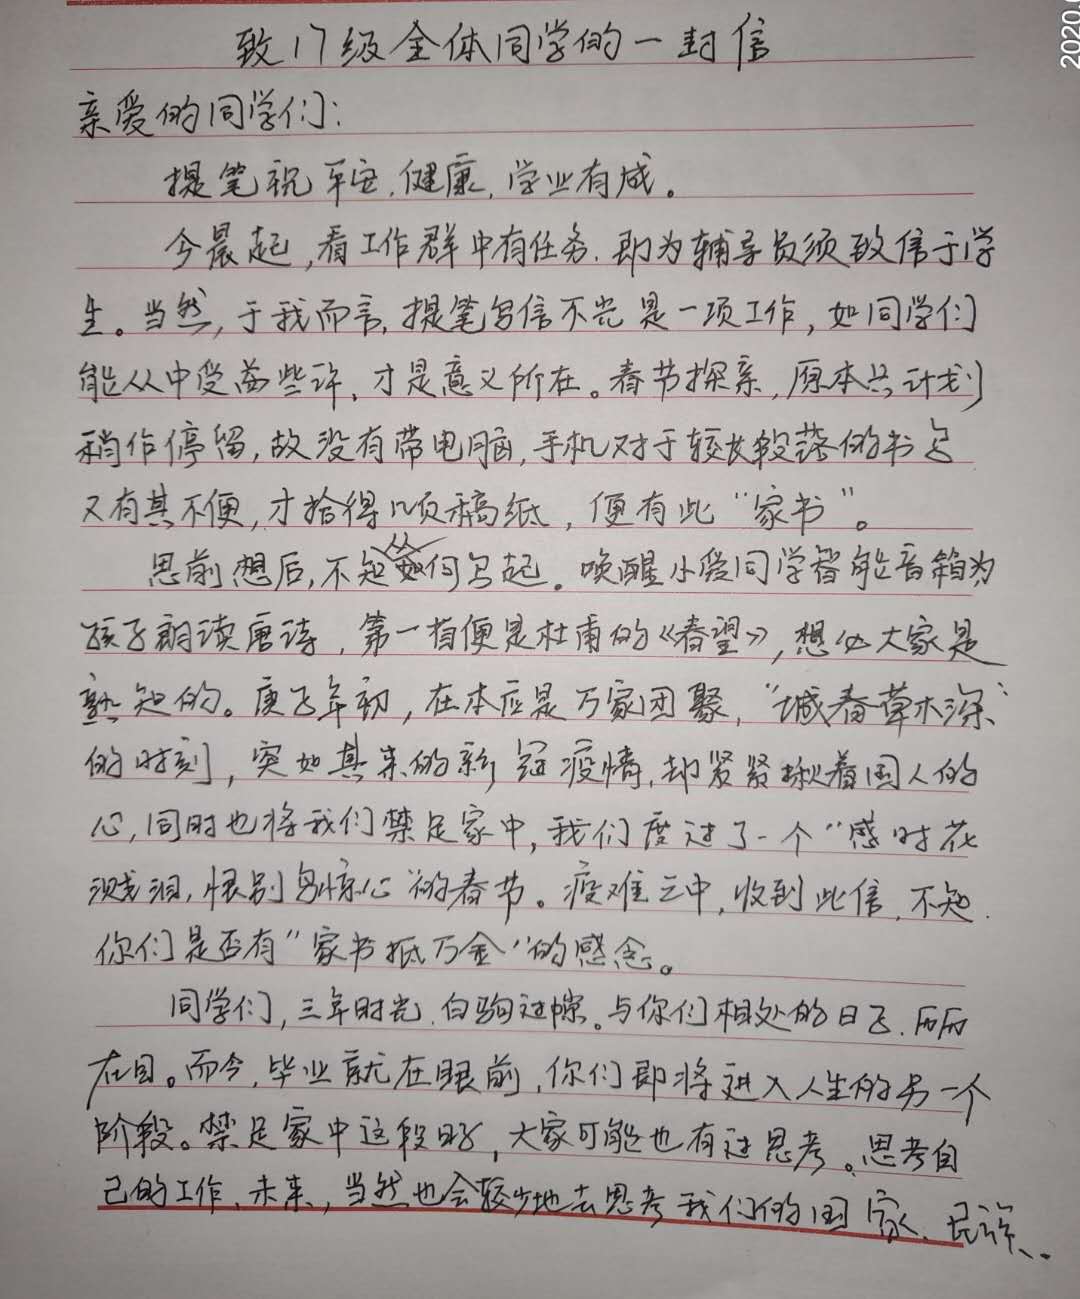 致17级全体同学的一封信
亲爱的同学们:
提笔祝平安,健康,学业有成。
今晨起,看工作群中有任务,即为辅导员须致信于学
生。当然,于我而言,提笔写信不光是一项工作,如同学们
能从中受益些许,才是意义所在。春节探亲,原本只计划
稍作停留,故没有带电脑,手机对于较长段落的书写
又有其不便,才拾得几页稿纸,便有此“家书”。
思前想后,不知从何写起。唤醒小爱同学智能音箱为
孩子朗读唐诗,第一首便是杜甫的《春望》,想必大家是
熟知的。庚子年初,在本应是万家团聚,“城春草木深”
的时刻,突如其来的新冠疫情,却紧紧揪着国人的
心,同时也将我们禁足家中,我们度过了一个“感时花
溅泪,恨别鸟惊心”的春节。疫难之中,收到此信,不知
你们是否有“家书抵万金”的感念。
同学们,三年时光,白驹过隙。与你们相处的日子,历历
在目。而今,毕业就在眼前,你们即将进入人生的另一个
阶段。禁足家中这段日子,大家可能也有过思考。思考自
己的工作、未来,当然也会较少地去思考我们的国家、民族、
2020